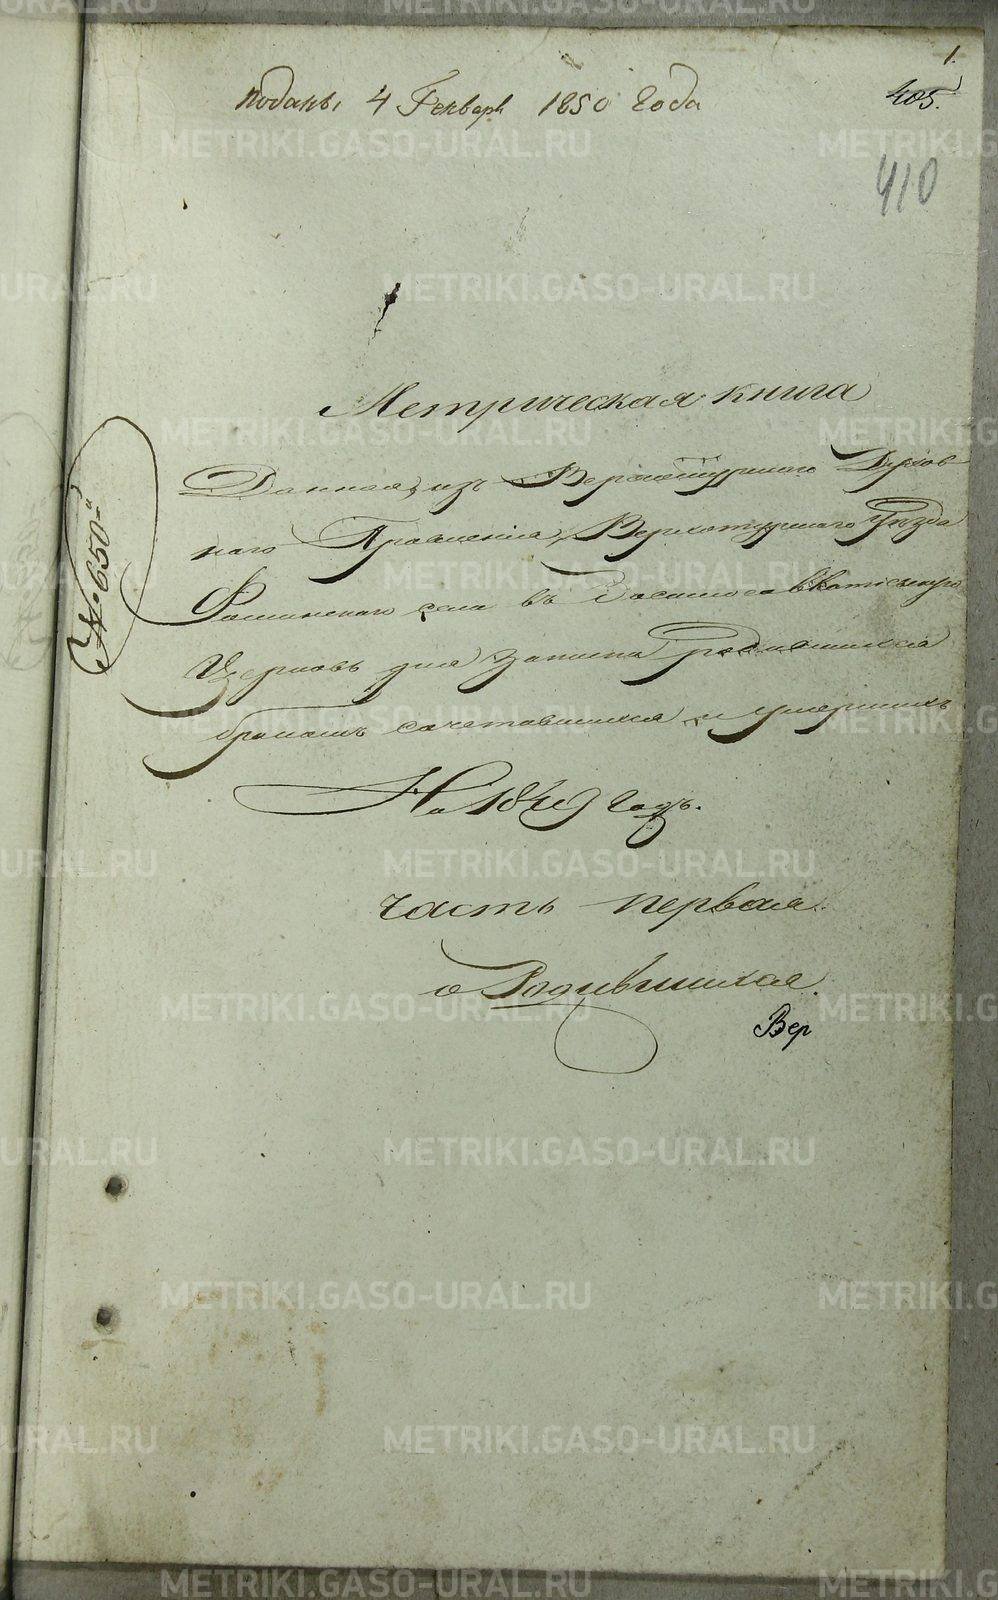 1.
поданы 4 Генваря 1850 года
405.
410
Метрическая книга
Данная изъ Верхотурскаго Духов
наго Правленія Верхотурскаго Уѣзда
Фоминскаго села въ Богословскую
Церковь для записи Родившихся
бракомъ сочетавшихся и умершихъ
На 1849 годъ.
часть первая.
о Родившихся.
Вер
№ 650-й
METRIKI.GASO-URAL.RU